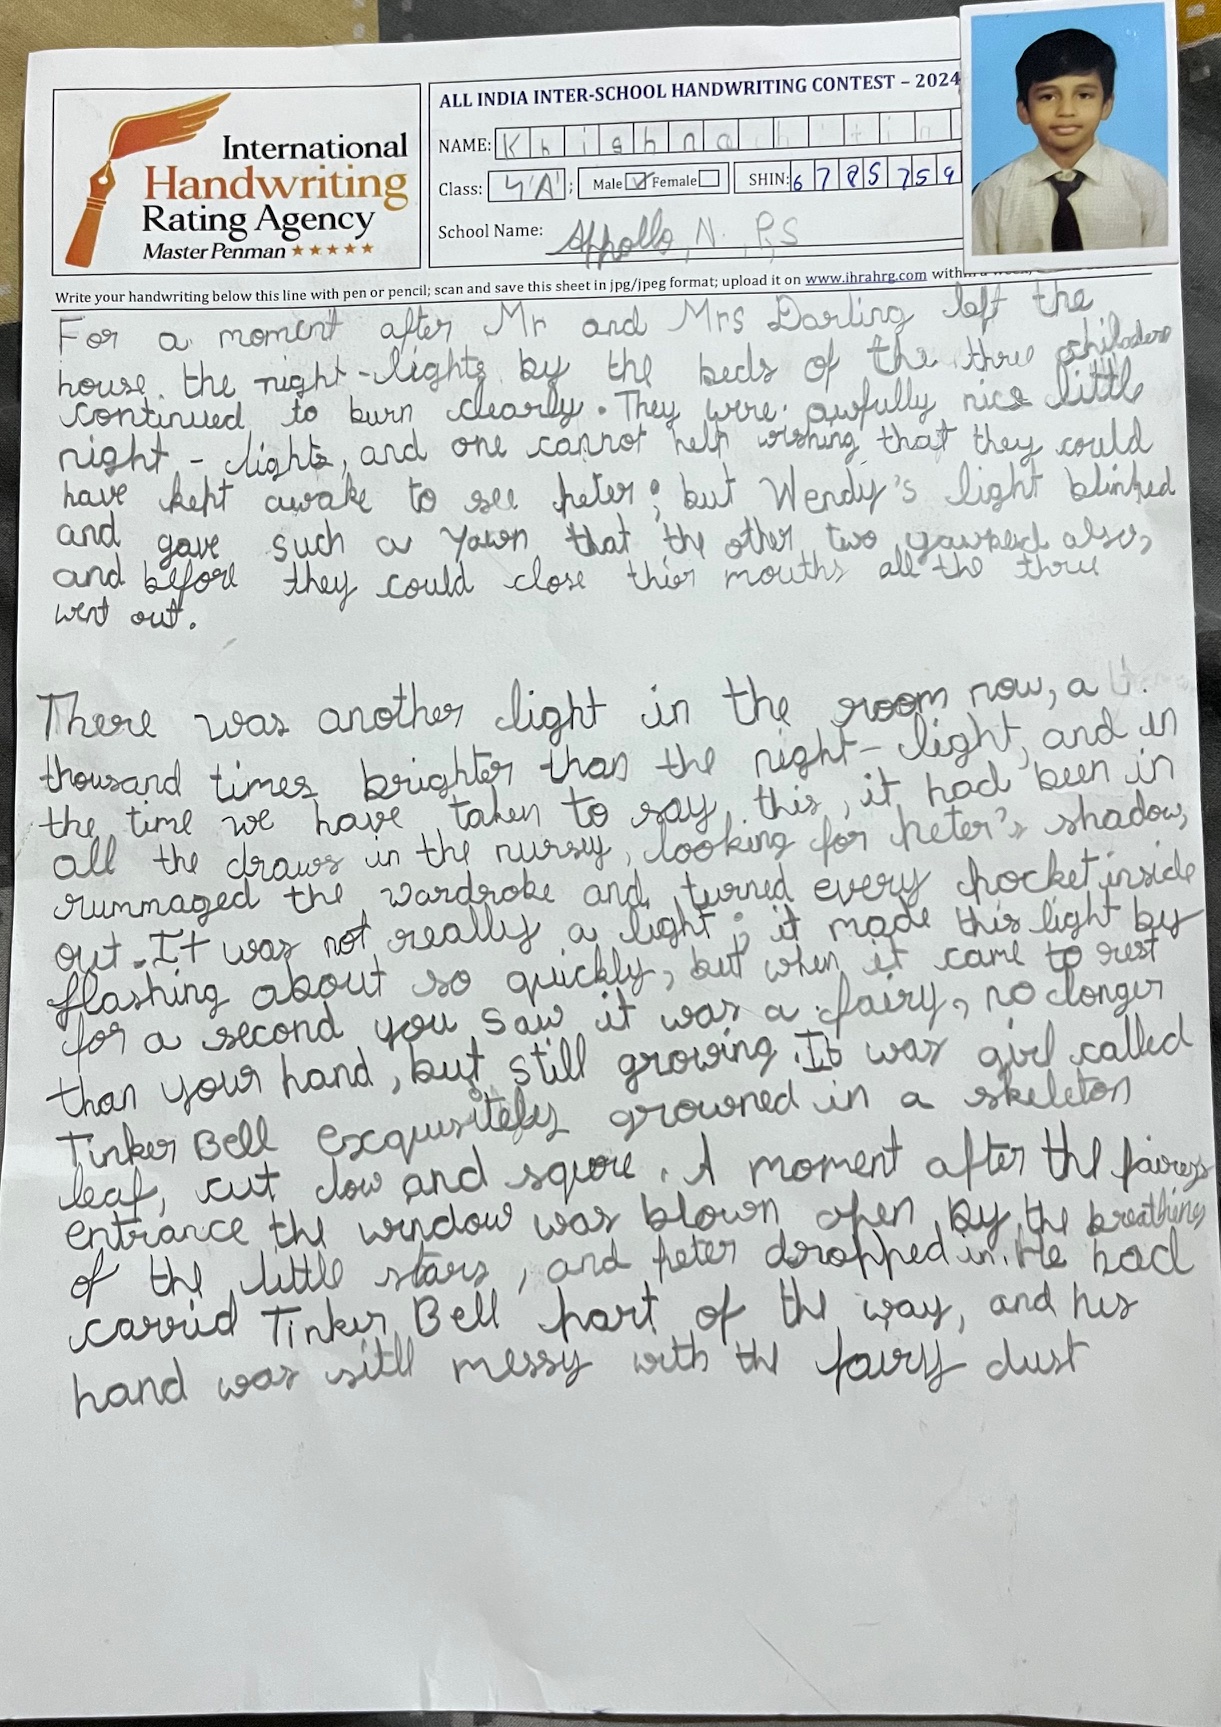 International
Handwriting
Rating Agency
Master Penman ★★★★★
ALL INDIA INTER-SCHOOL HANDWRITING CONTEST – 2024
NAME: Krishna
Class: 4'A' ; Male ✓ Female SHIN: 6785759
School Name: Appollo, N. P.S
Write your handwriting below this line with pen or pencil; scan and save this sheet in jpg/jpeg format; upload it on www.ihrahrg.com with
For a moment after Mr and Mrs Darling left the
house. the night-lights by the beds of the three childern
continued to burn clearly. They were. awfully nice little
night - lights, and one cannot help wishing that they could
have kept awake to see peter; but Wendy's light blinked
and gave such a yawn that the other two yawned also,
and before they could close thier mouths all the three
went out.
There was another light in the room now, a
thousand times brighter than the night-light, and in
the time we have taken to say this, it had been in
all the draws in the nursey, looking for peter's shadow,
rummaged the wardroke and turned every pocket inside
out. It was not really a light; it made this light by
flashing about so quickly, but when it came to rest
for a second you saw it was a fairy, no longer
than your hand, but still growing. It was girl called
Tinker Bell exquisitely growned in a skeleton
leaf, cut low and square. A moment after the fairey
entrance the window was blown open by the breathing
of the little stars, and peter dropped in. He had
carrid Tinker Bell part of the way, and his
hand was sitll messy with the fairy dust